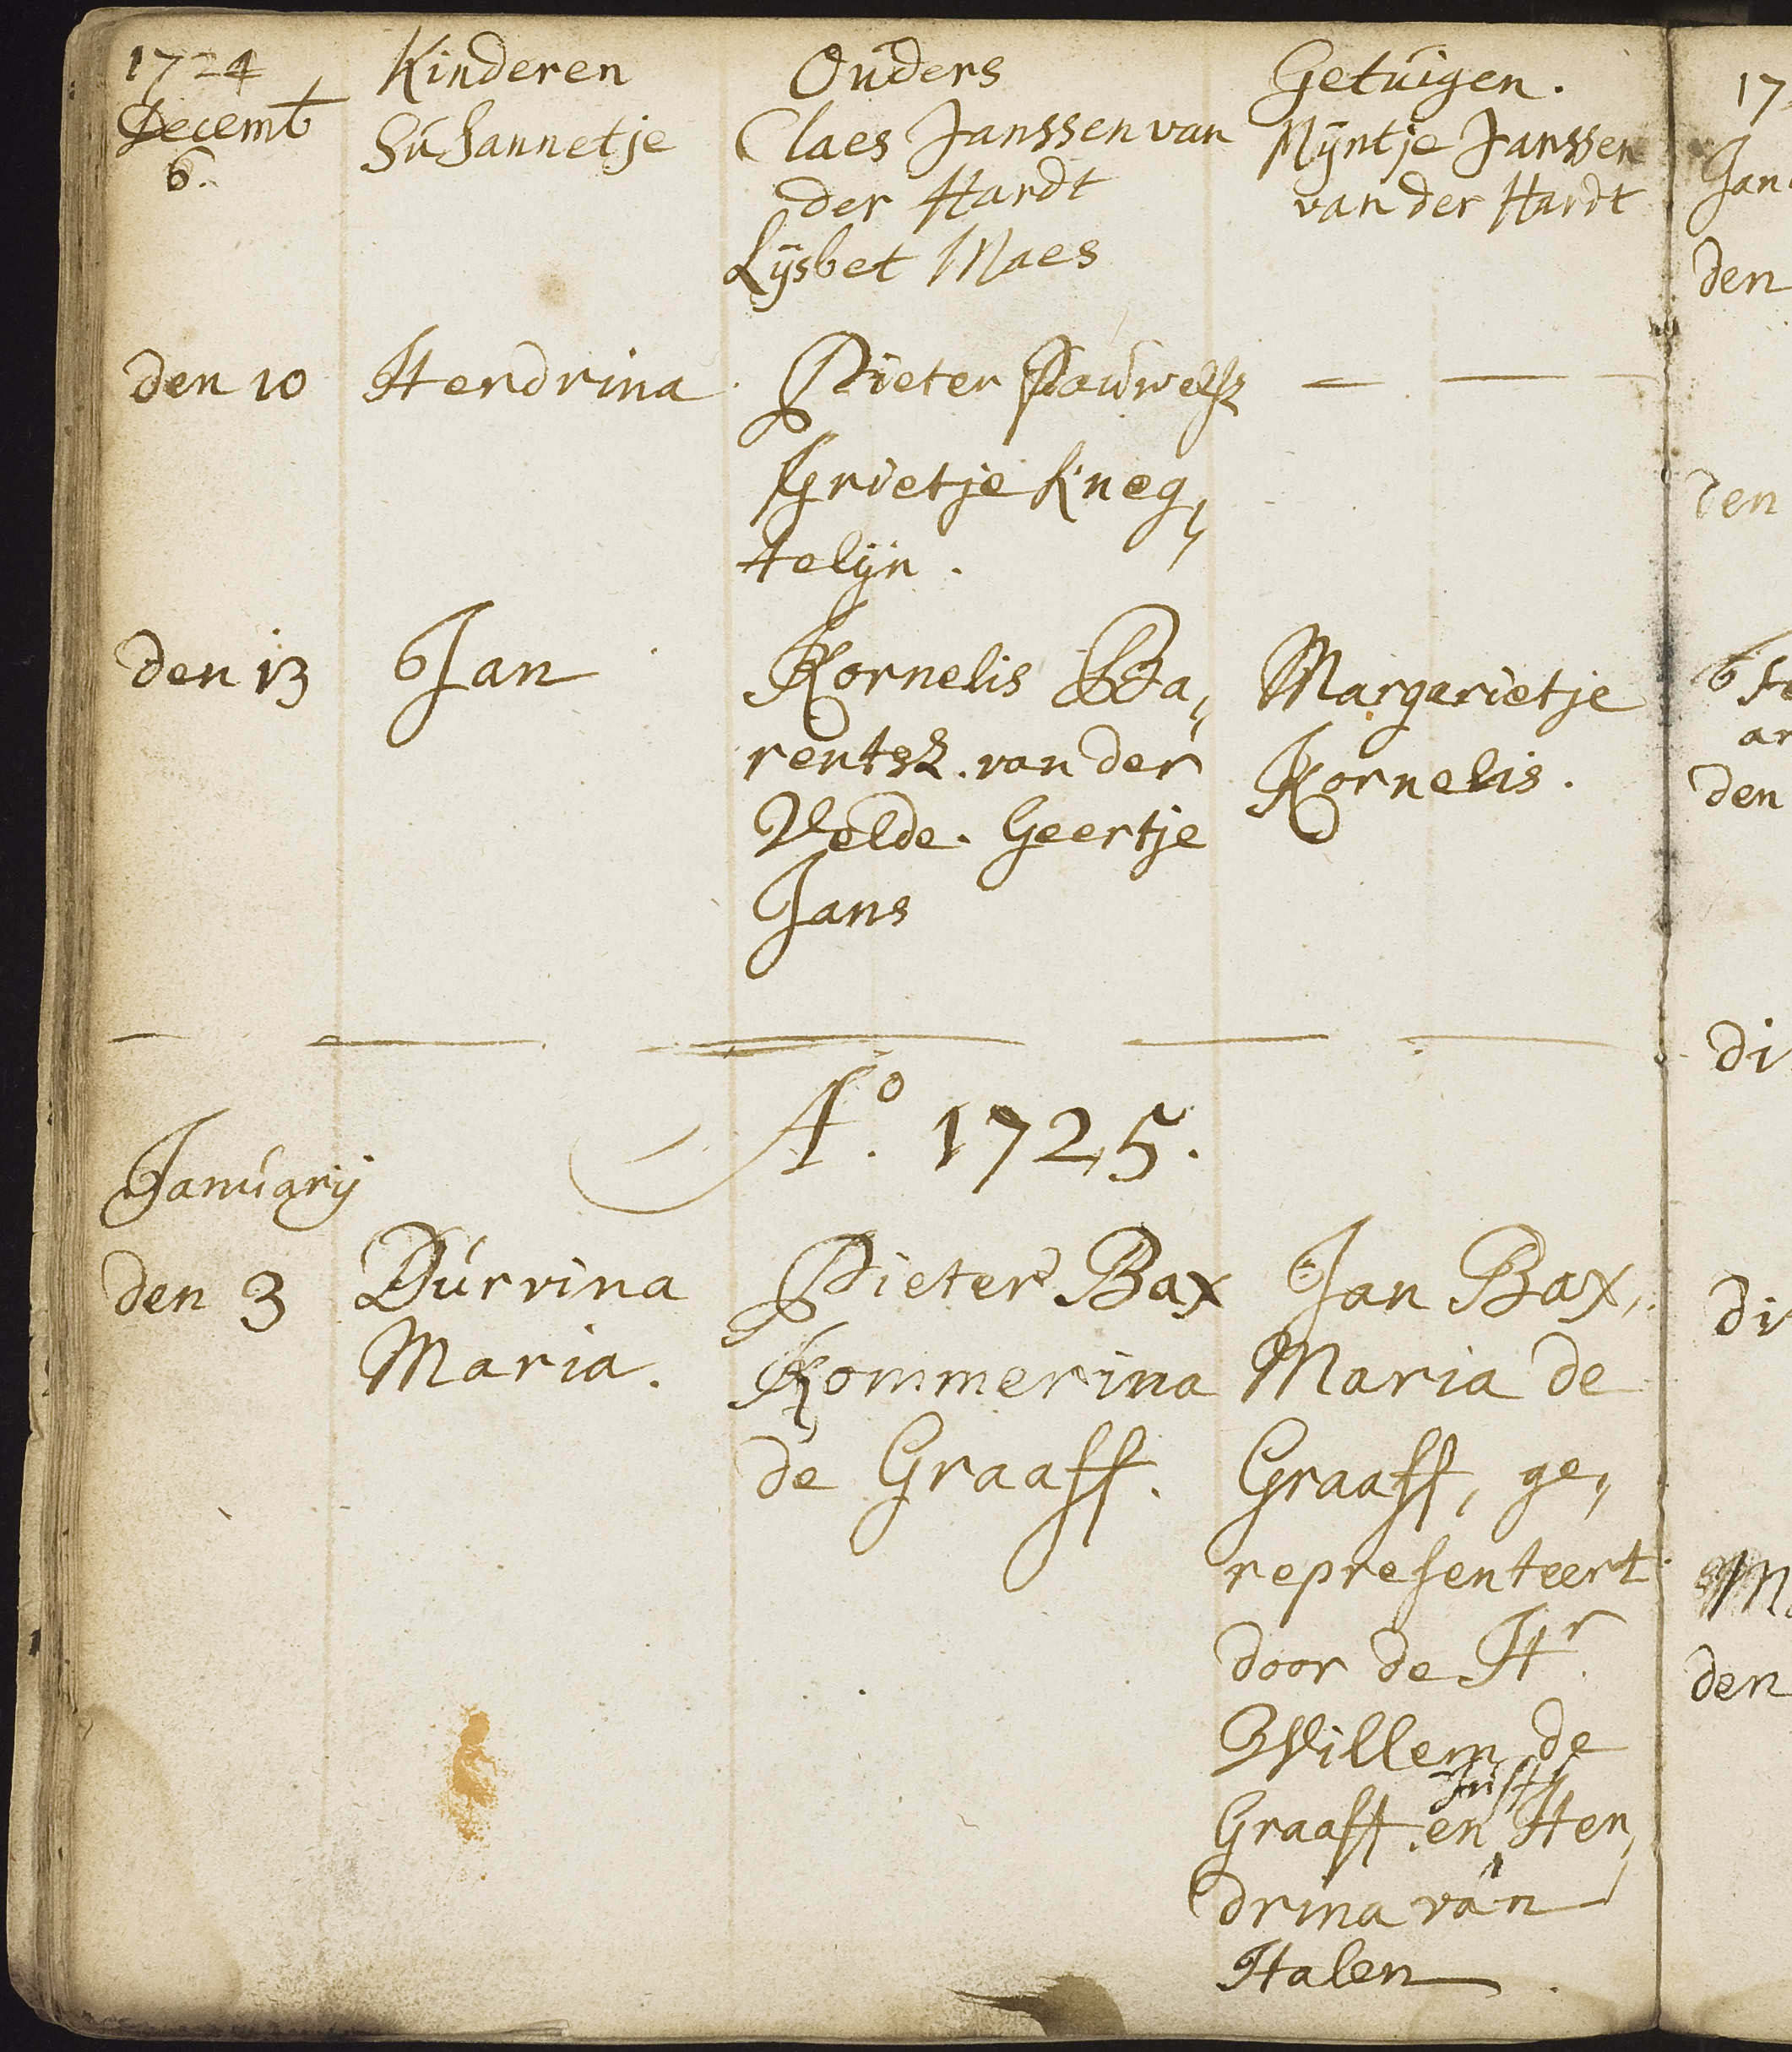 1724 Kinderen Ouders Getuigen.
Decemb
6. Susannetje Claes Janssen van Mijntje Janssen
der Hardt van der Hardt
Lijsbet Maes
den 10 Hendrina Pieter Pauwelsz — —
Grietje Kneg„
telijn.
den 13 Jan Kornelis Ba„ Margarietje
rentsz. van der Kornelis.
Velde. Geertje
Jans
Ao. 1725.
Januarij
den 3 Durvina Pieter Bax Jan Bax,
Maria. Kommerina Maria de
de Graaff. Graaff, ge„
representeert
door de Hr.
Willem de
Juffr
Graaff en Hen„
drina van
Halen
17
Jan
den
den
den
di
di
M
den